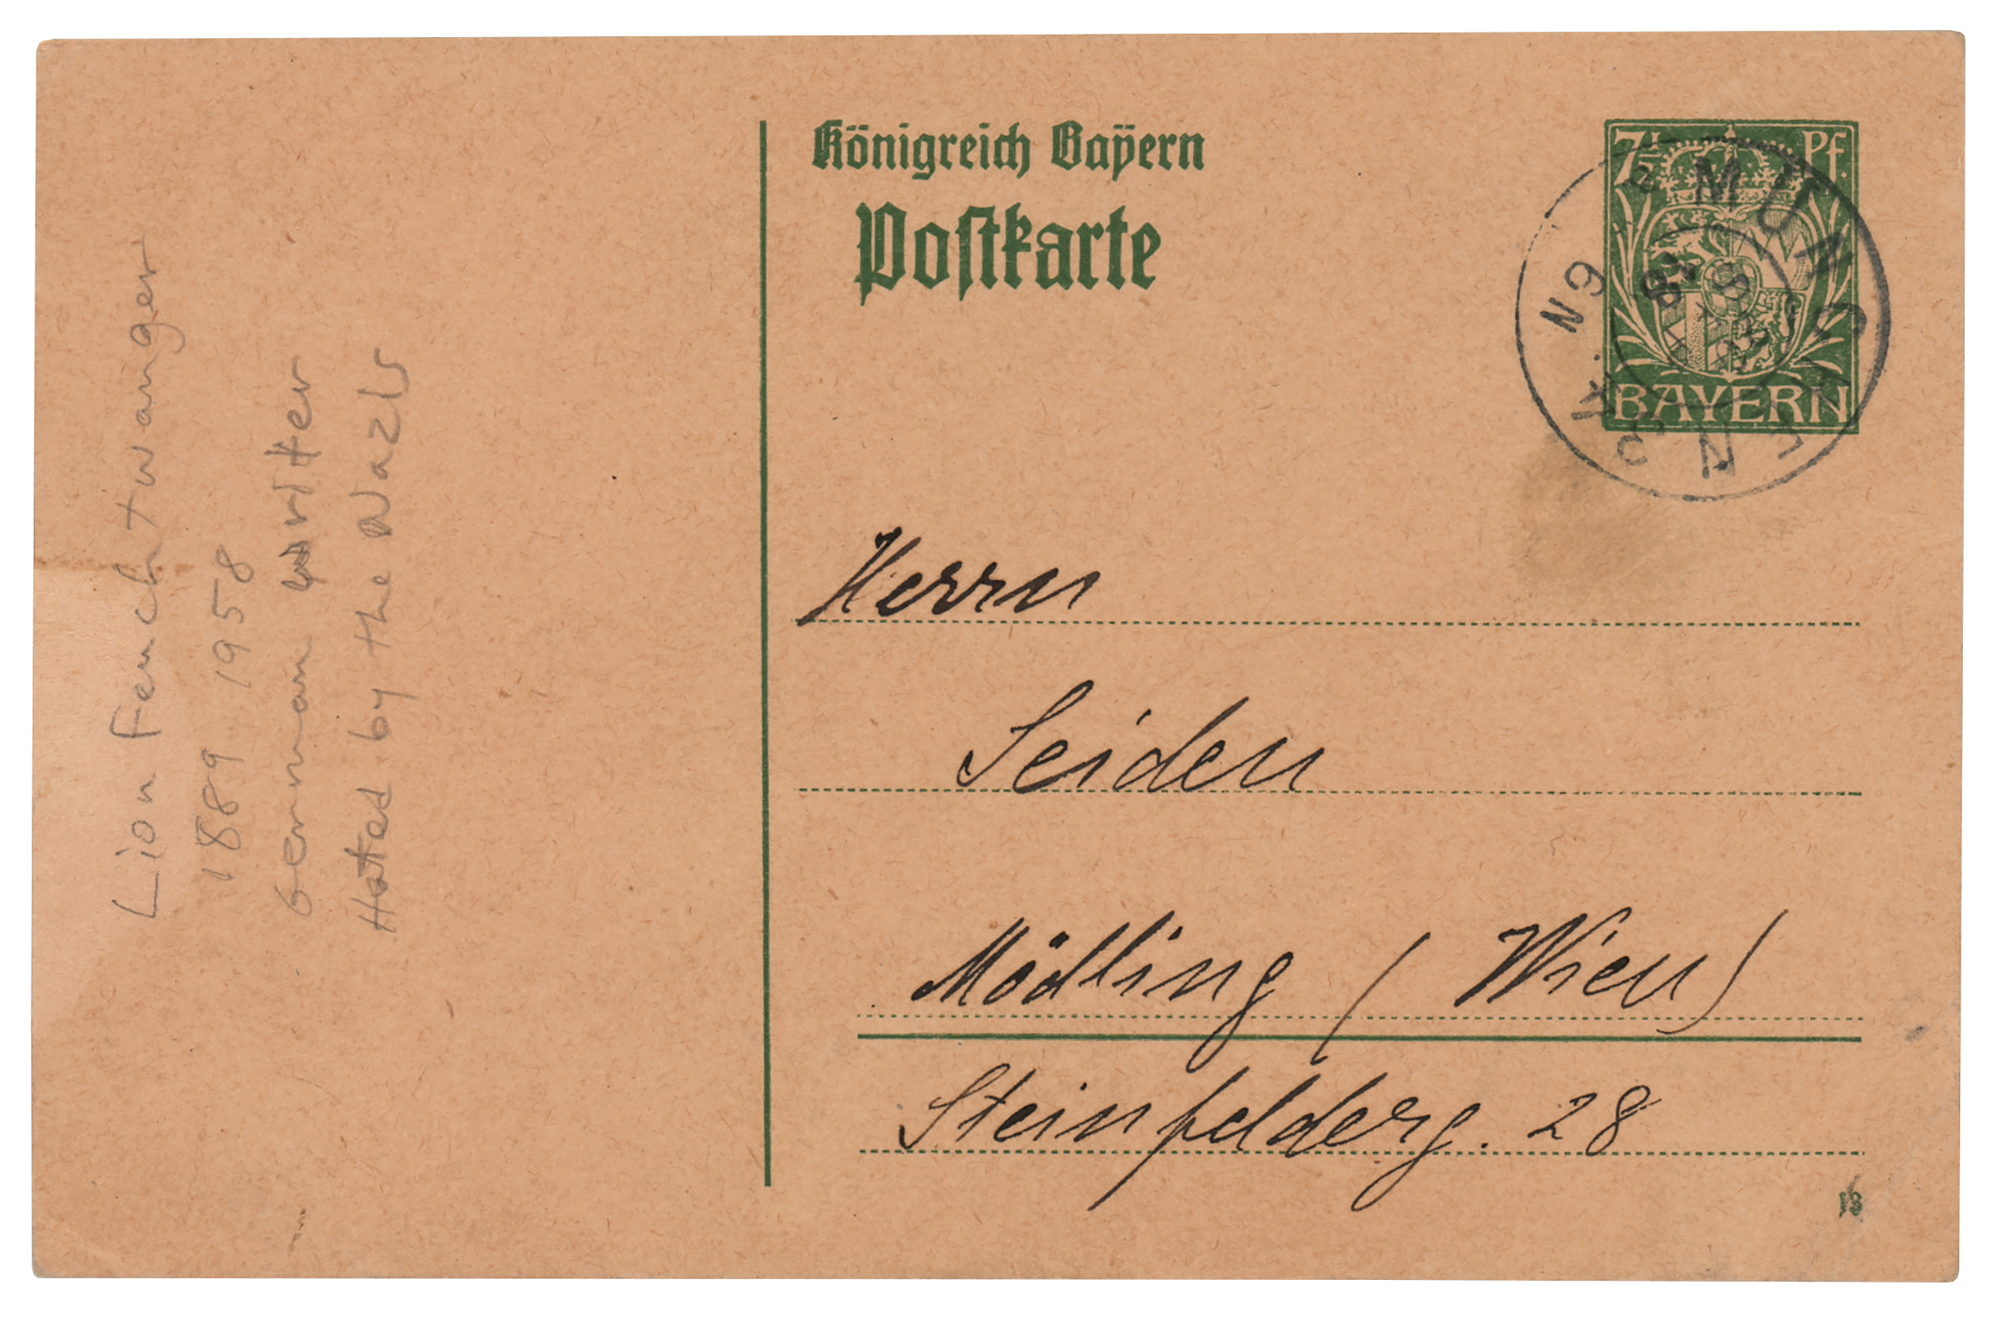 Königreich Bayern
Postkarte
7½ Pf.
BAYERN
MÜNCHEN
Herrn
Seiden
Mödling (Wien)
Steinfelderg. 28
18
Lion Feuchtwanger
1889 1958
German writer
Hated by the Nazis